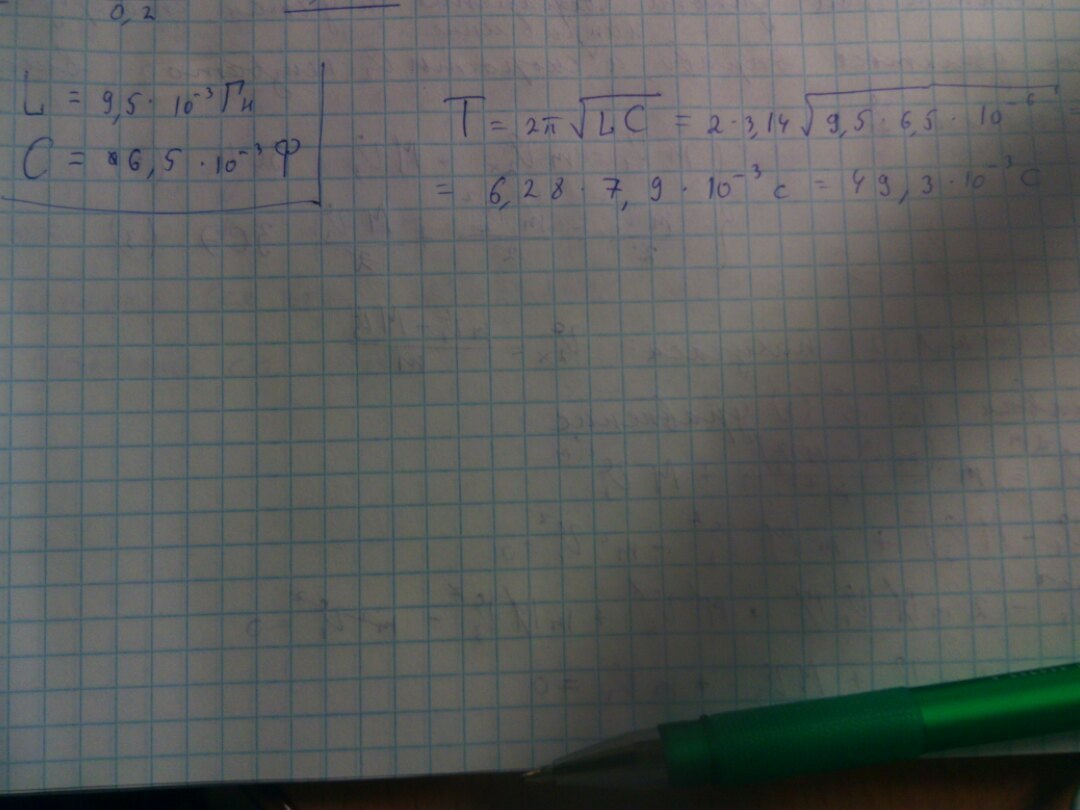 0,2
L = 9,5 · 10⁻³ Гн
C = 6,5 · 10⁻³ Ф
T = 2π √LC = 2·3,14 √9,5 · 6,5 · 10⁻⁶ =
= 6,28 · 7,9 · 10⁻³ с = 49,3 · 10⁻³ с